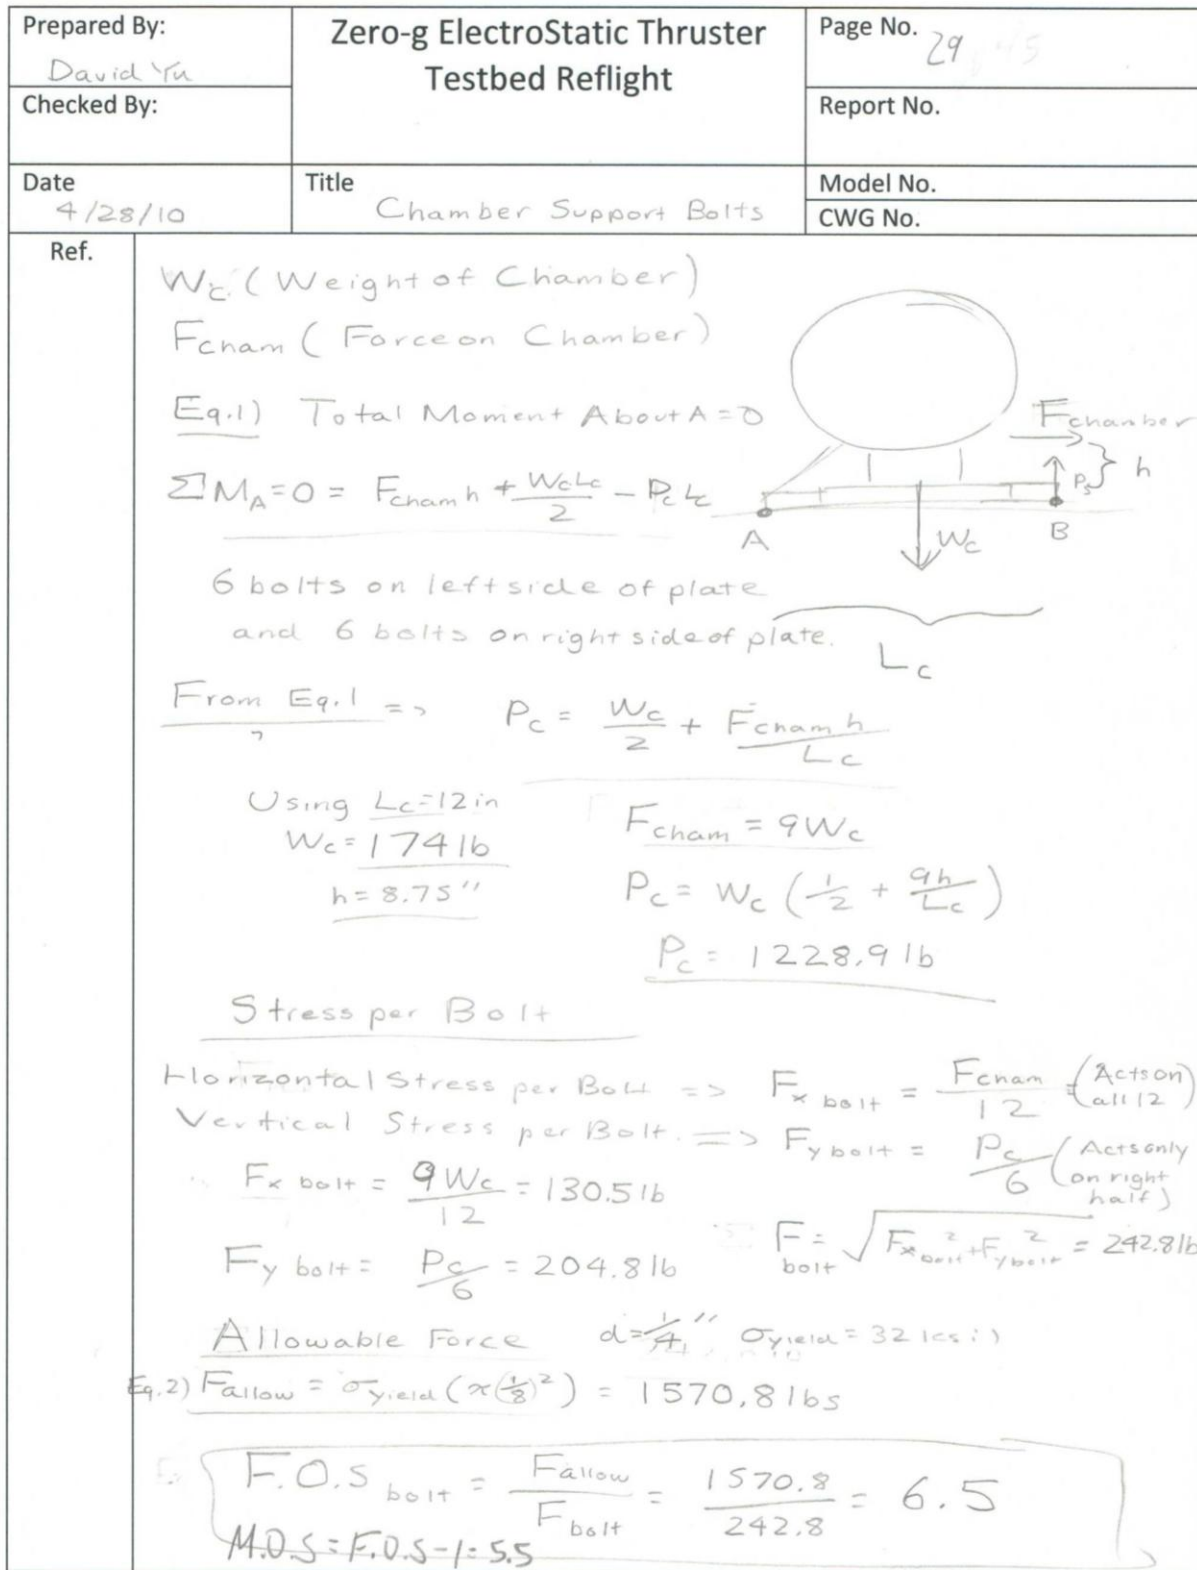 Prepared By:
David Yu
Checked By:
Zero-g ElectroStatic Thruster
Testbed Reflight
Page No. 29
Report No.
Date
4/28/10
Title
Chamber Support Bolts
Model No.
CWG No.
Ref.
Wc (Weight of Chamber)
Fcham (Force on Chamber)
Eq.1) Total Moment About A = 0
ΣM_A = 0 = Fcham h + WcLc/2 - Pc Lc
Fchamber
h
Ps
A
Wc
B
Lc
6 bolts on left side of plate
and 6 bolts on right side of plate.
From Eq.1 => Pc = Wc/2 + Fcham h/Lc
Using Lc=12in
Wc = 174 lb
h = 8.75"
Fcham = 9Wc
Pc = Wc (1/2 + 9h/Lc)
Pc = 1228.9 lb
Stress per Bolt
Horizontal Stress per Bolt => Fx bolt = Fcham/12 (Acts on all 12)
Vertical Stress per Bolt. => Fy bolt = Pc/6 (Acts only on right half)
Fx bolt = 9Wc/12 = 130.5 lb
Fy bolt = Pc/6 = 204.8 lb
F bolt = √(Fx bolt² + Fy bolt²) = 242.8 lb
Allowable Force d = 1/4" σyield = 32 ksi)
Eq.2) Fallow = σyield (π(1/8)²) = 1570.8 lbs
F.O.S bolt = Fallow/Fbolt = 1570.8/242.8 = 6.5
M.O.S = F.O.S - 1 = 5.5